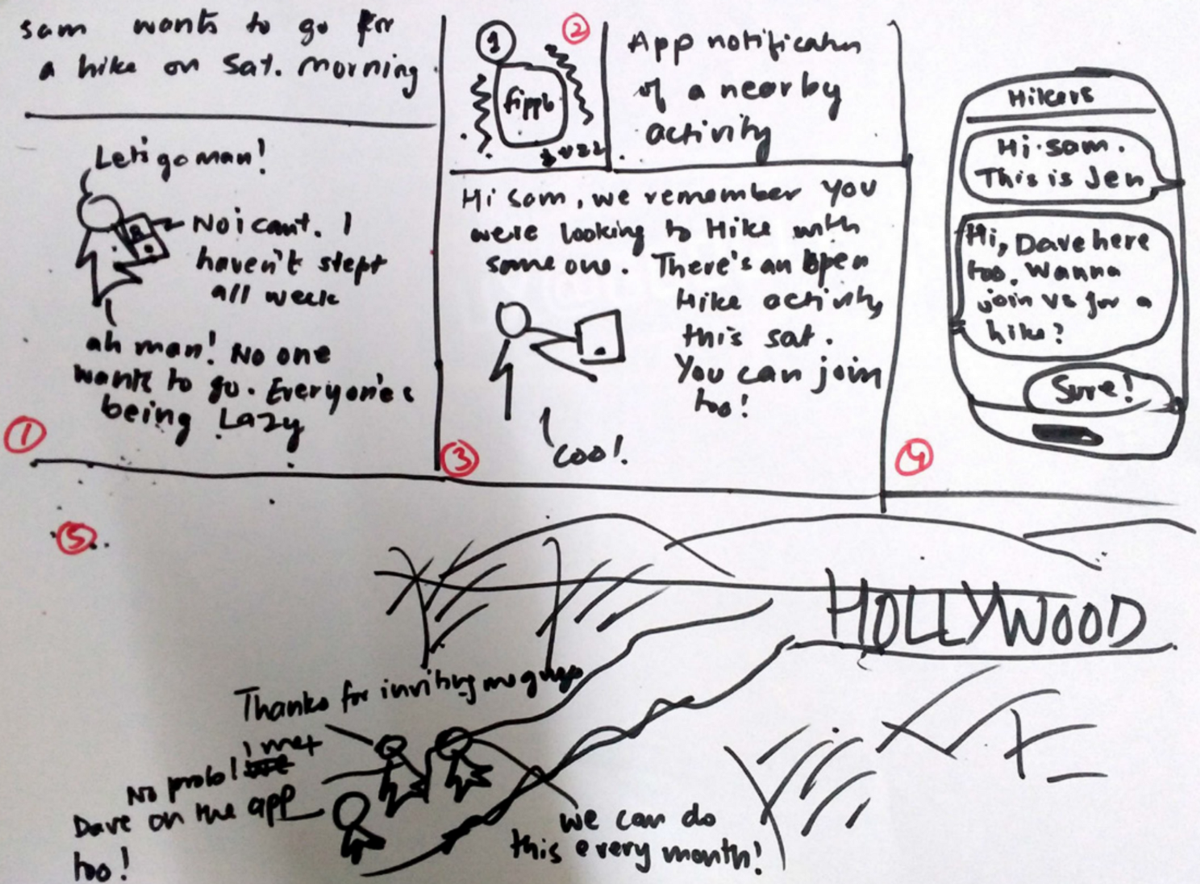 sam wants to go for
a hike on Sat. morning.
Let's go man!
No i cant. I
haven't slept
all week
ah man! No one
wants to go. Everyone's
being Lazy
1
1
2
App notification
of a nearby
activity
Hi Sam, we remember you
were looking to Hike with
someone. There's an open
Hike activity
this sat.
You can join
too!
Cool!
3
Hikers
Hi Sam.
This is Jen
Hi, Dave here
too. Wanna
join us for a
hike?
Sure!
4
5
HOLLYWOOD
Thanks for inviting me guys
No probl! i met
Dave on the app
too!
we can do
this every month!